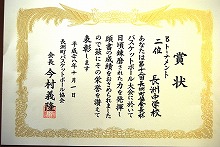 賞状
Bトーナメント
二位
長洲中学校
あなたは第十六回長洲町協会長杯
バスケットボール大会に於いて
日頃錬磨された力を発揮し
頭書の成績をおさめられました
ので茲にその栄誉を讃えて
表彰します
平成二八年十月一日
長洲町バスケットボール協会
会長 今村義隆